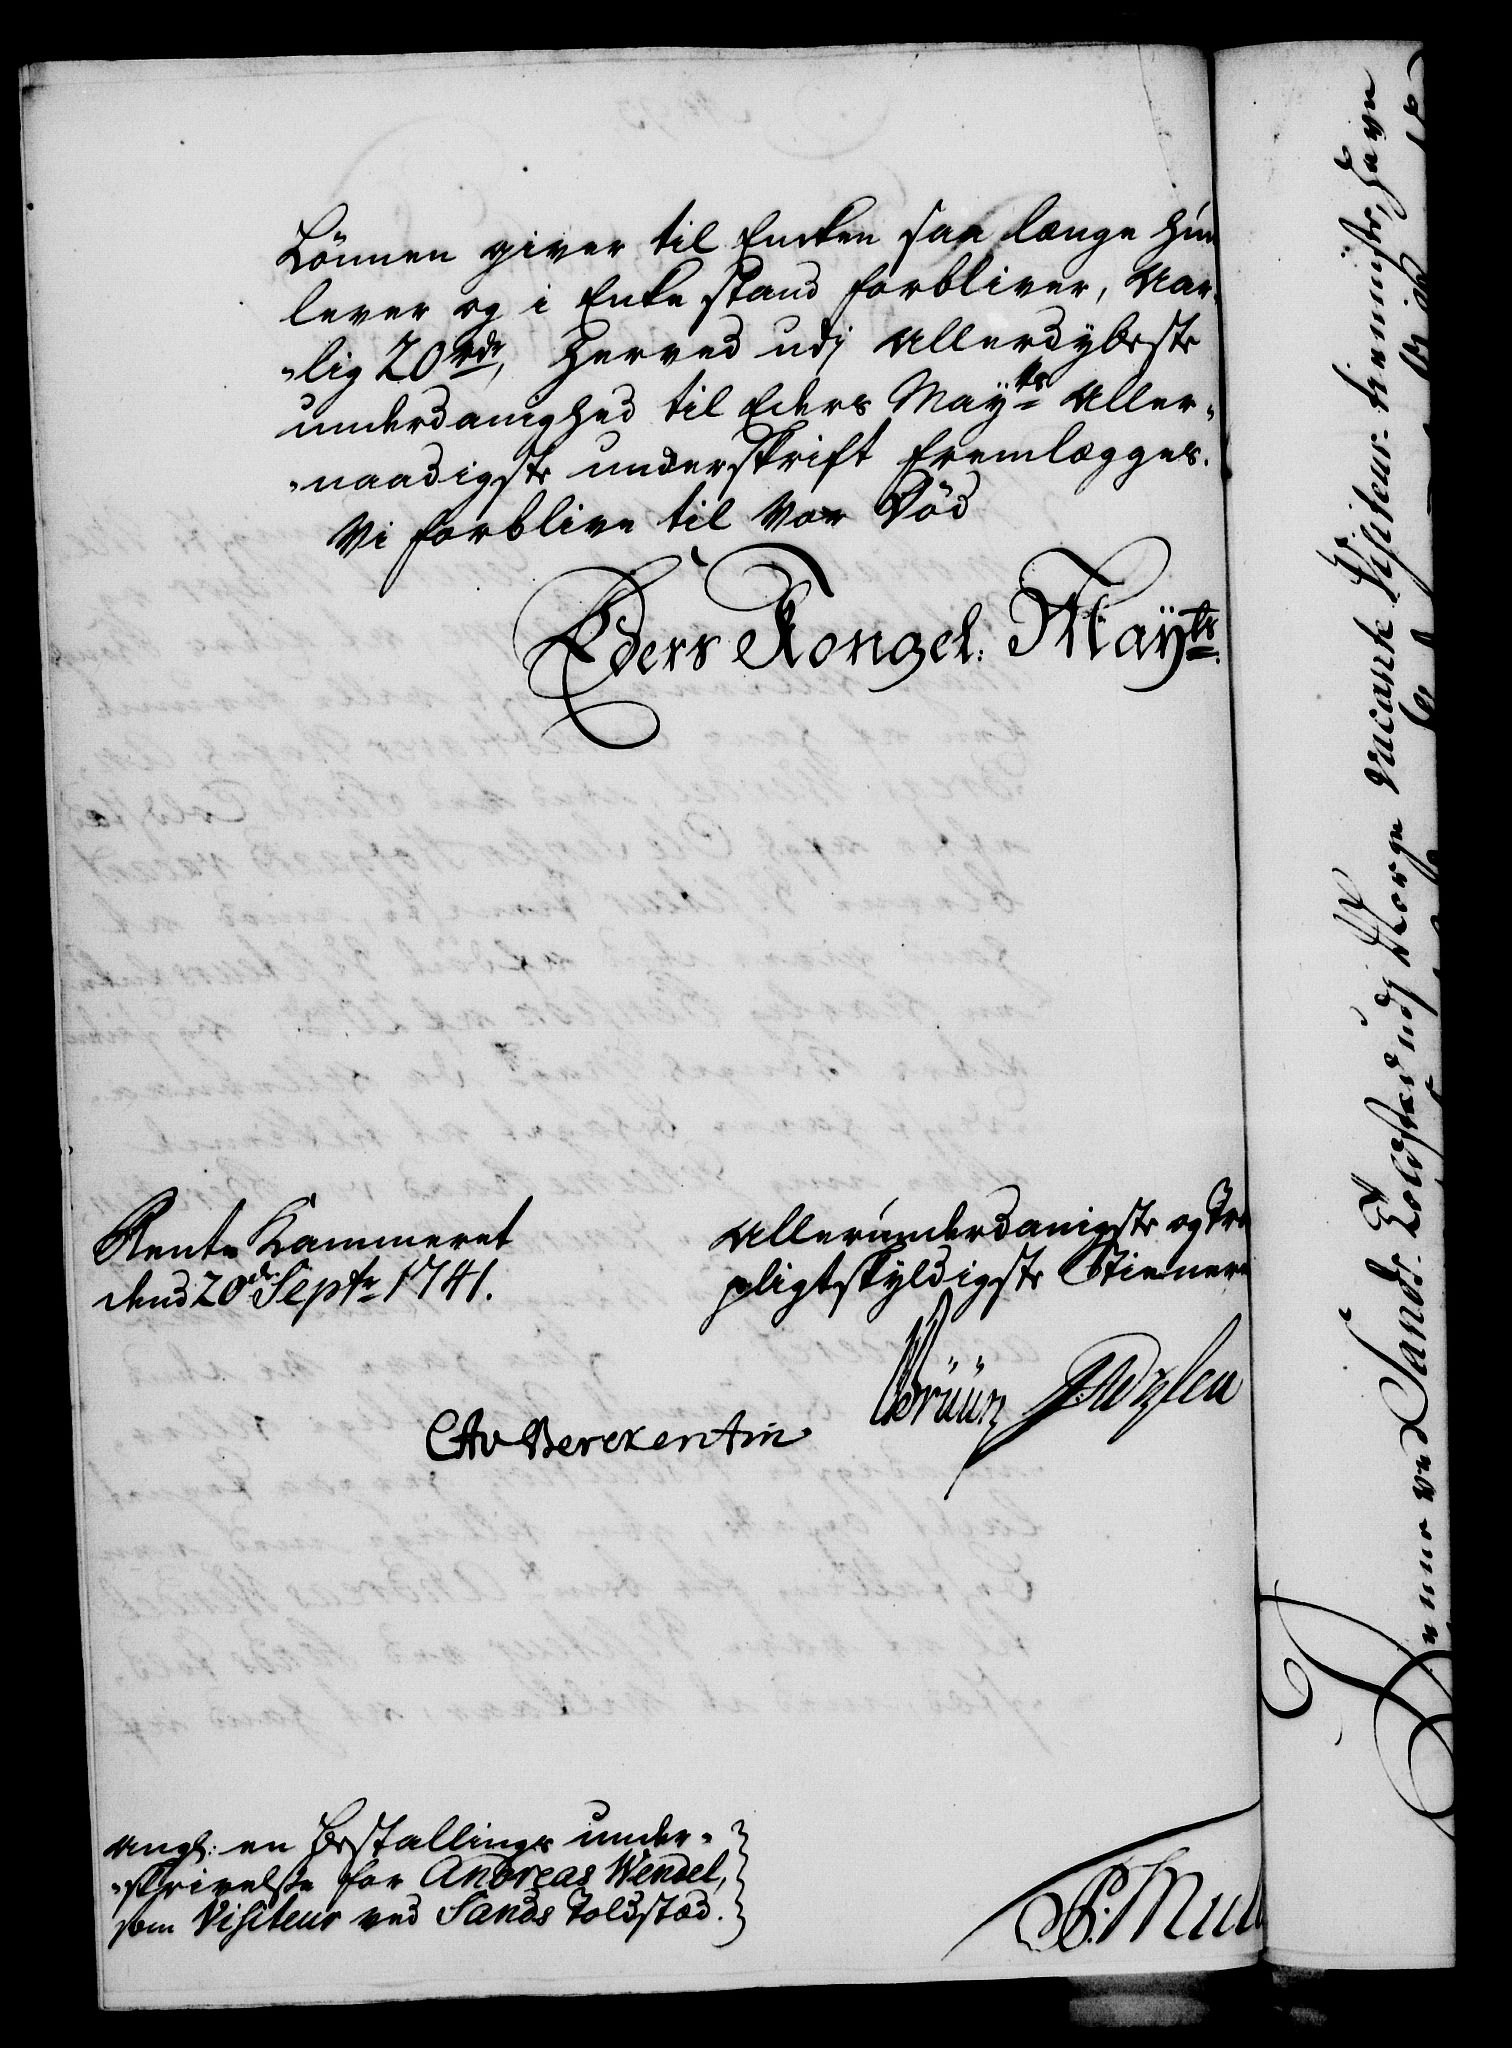 Lönnen giver til Encken saa længe hun
lever og i Enke stand forbliver, Aar-
-lig 20 rdr, herved udj Allerdybeste
underdanighed til Eders Mayts Aller-
-naadigste underskrift fremlægges.
Vi forblive til Vor Död
Eders Kongel: Mayts
Rente Kammeret
dend 20de Septr 1741.
Allerunderdanigste og Tro
pligtskyldigste Tienere
CAv Berckentin
Brüün
Ang: en Bestallings under-
-skrivelse for Andreas Wendel,
som Visiteur ved Sands Toldstæd.
P: Mul
denne ved Sands Toldsted udj Norge vacante Visiteur-tienniste, havn